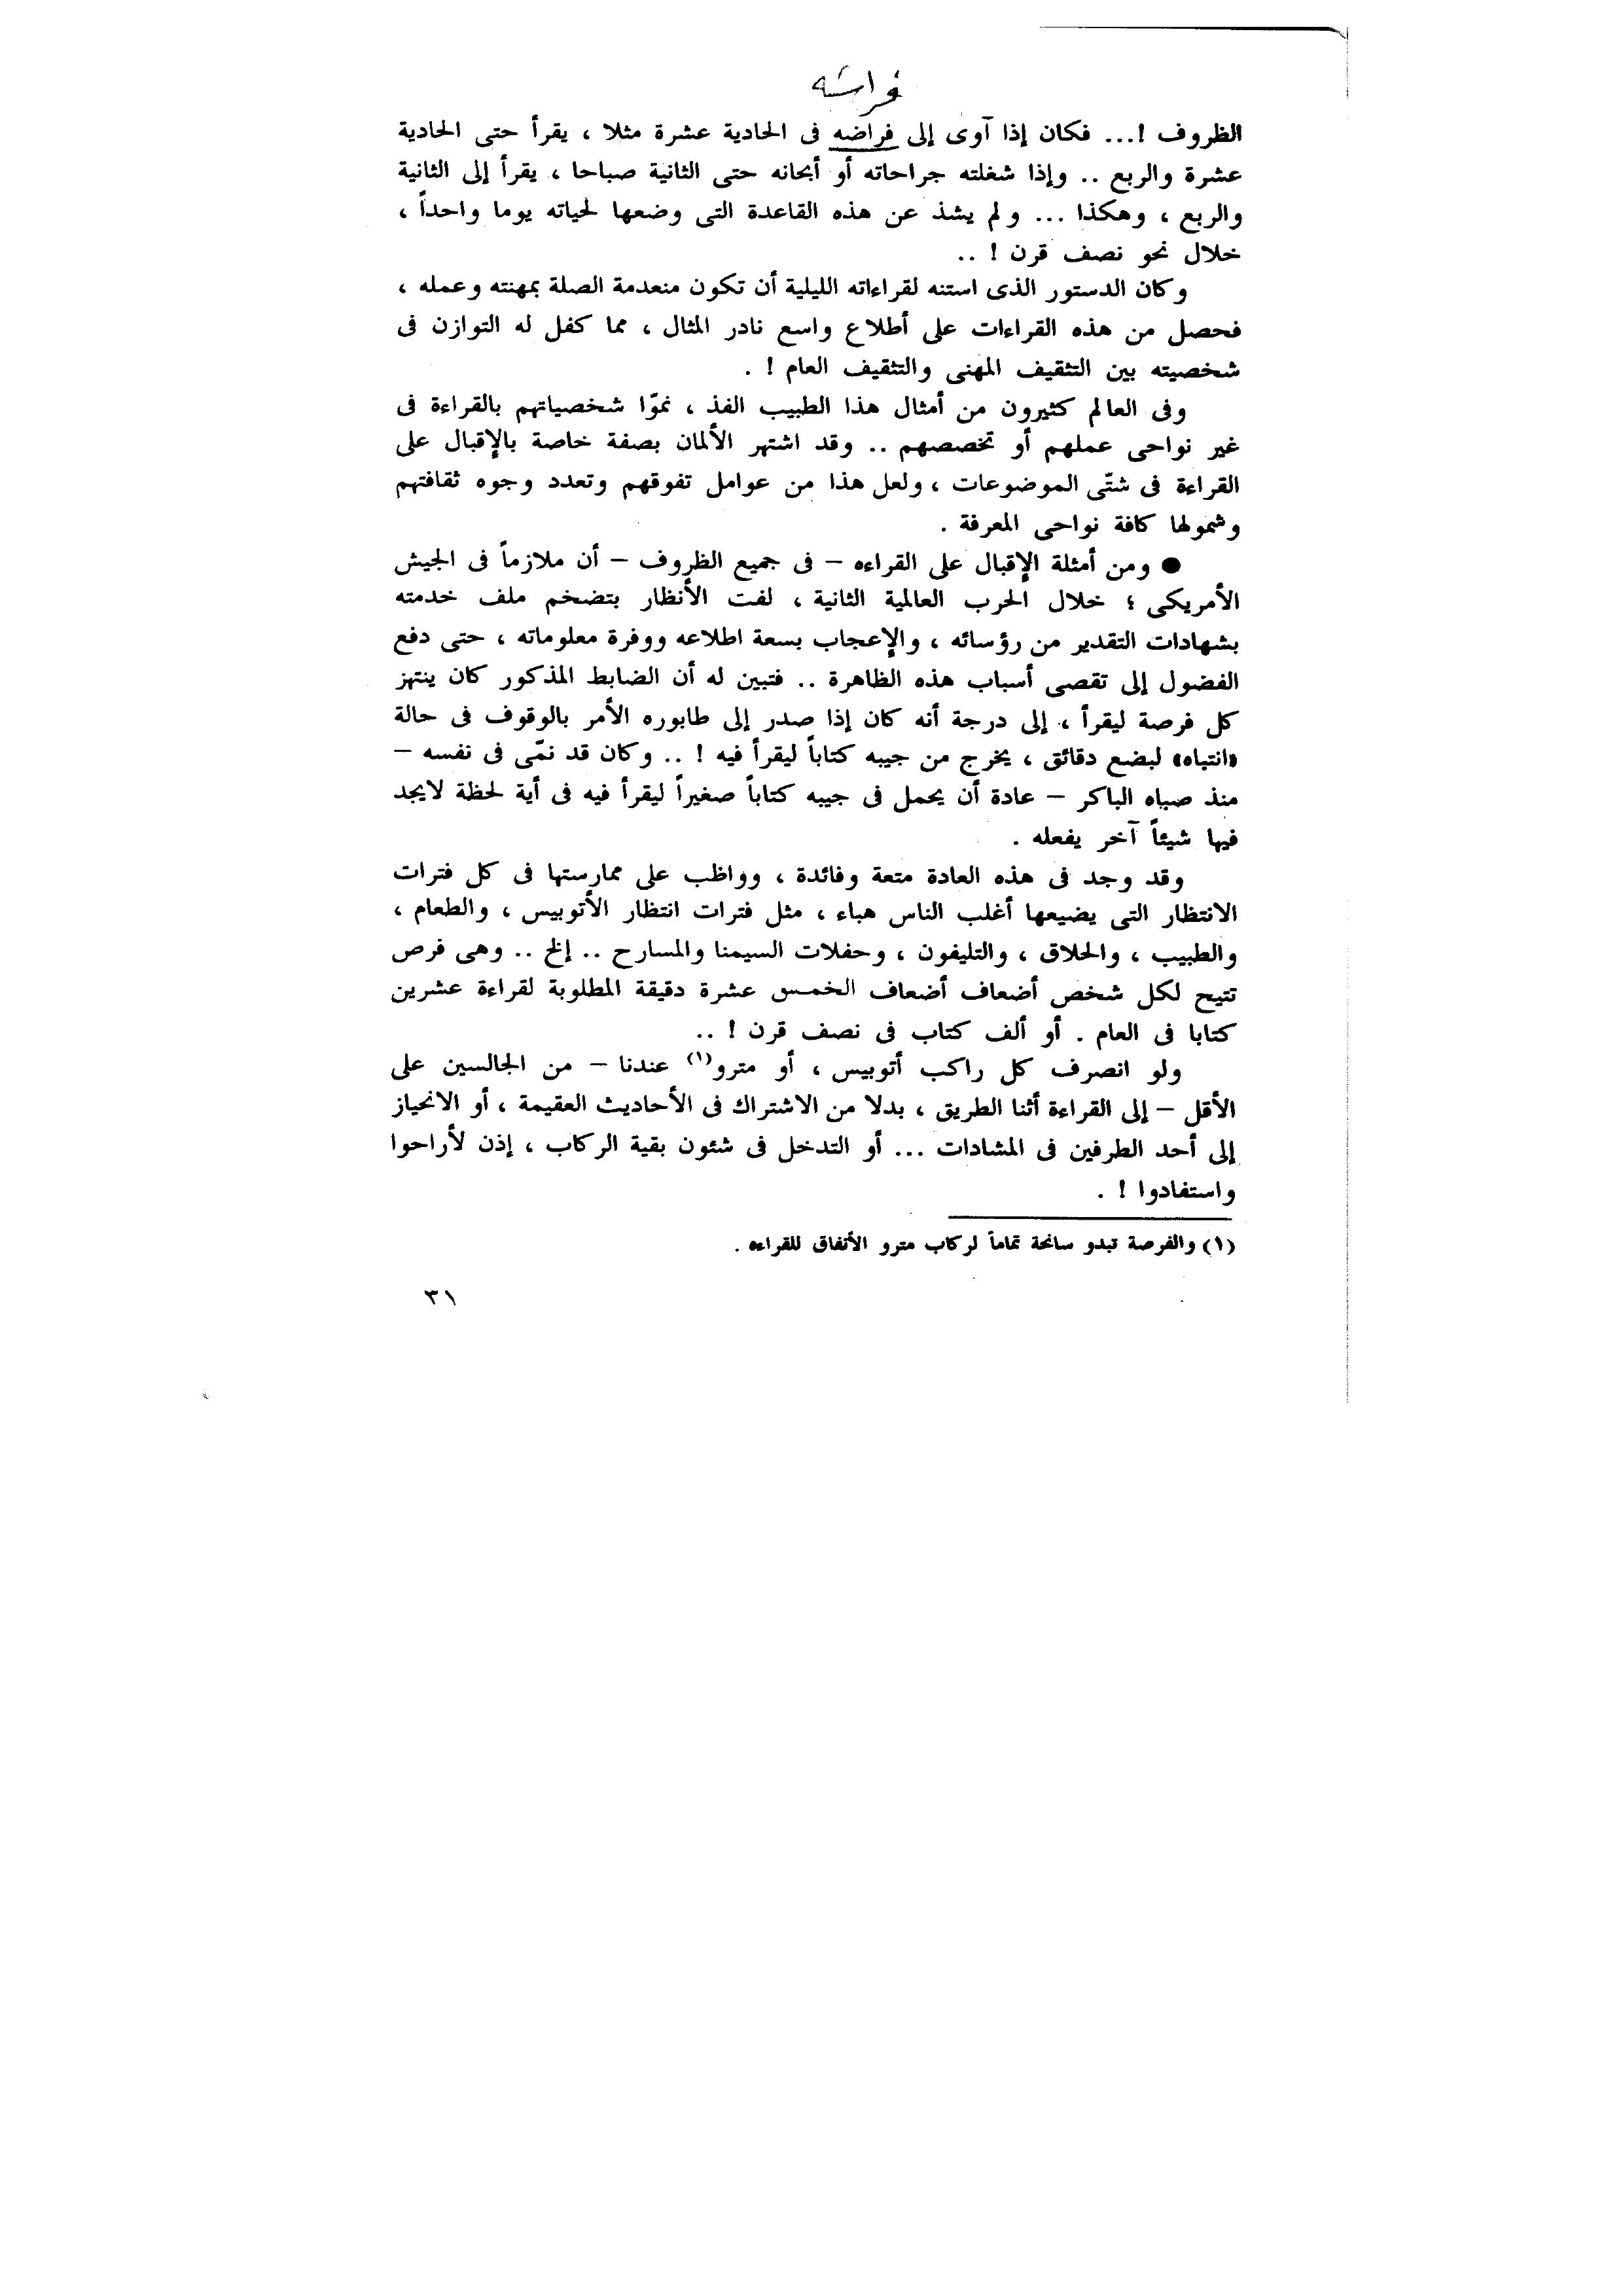 فراشه
الظروف !... فكان إذا آوى إلى فراضه فى الحادية عشرة مثلا ، يقرأ حتى الحادية
عشرة والربع .. وإذا شغلته جراحاته أو أبحاثه حتى الثانية صباحا ، يقرأ إلى الثانية
والربع ، وهكذا ... ولم يشذ عن هذه القاعدة التى وضعها لحياته يوما واحداً ،
خلال نحو نصف قرن ! ..
وكان الدستور الذى استنه لقراءاته الليلية أن تكون منعدمة الصلة بمهنته وعمله ،
فحصل من هذه القراءات على أطلاع واسع نادر المثال ، مما كفل له التوازن فى
شخصيته بين التثقيف المهنى والتثقيف العام ! .
وفى العالم كثيرون من أمثال هذا الطبيب الفذ ، نموّا شخصياتهم بالقراءة فى
غير نواحى عملهم أو تخصصهم .. وقد اشتهر الألمان بصفة خاصة بالإقبال على
القراءة فى شتّى الموضوعات ، ولعل هذا من عوامل تفوقهم وتعدد وجوه ثقافتهم
وشمولها كافة نواحى المعرفة .
● ومن أمثلة الإقبال على القراءه – فى جميع الظروف – أن ملازماً فى الجيش
الأمريكى ؛ خلال الحرب العالمية الثانية ، لفت الأنظار بتضخم ملف خدمته
بشهادات التقدير من رؤسائه ، والإعجاب بسعة اطلاعه ووفرة معلوماته ، حتى دفع
الفضول إلى تقصى أسباب هذه الظاهرة .. فتبين له أن الضابط المذكور كان ينتهز
كل فرصة ليقرأ ، إلى درجة أنه كان إذا صدر إلى طابوره الأمر بالوقوف فى حالة
«انتباه» لبضع دقائق ، يخرج من جيبه كتاباً ليقرأ فيه ! .. وكان قد نمّى فى نفسه –
منذ صباه الباكر – عادة أن يحمل فى جيبه كتاباً صغيراً ليقرأ فيه فى أية لحظة لايجد
فيها شيئاً آخر يفعله .
وقد وجد فى هذه العادة متعة وفائدة ، وواظب على ممارستها فى كل فترات
الانتظار التى يضيعها أغلب الناس هباء ، مثل فترات انتظار الأتوبيس ، والطعام ،
والطبيب ، والحلاق ، والتليفون ، وحفلات السيمنا والمسارح .. إلخ .. وهى فرص
تتيح لكل شخص أضعاف أضعاف الخمس عشرة دقيقة المطلوبة لقراءة عشرين
كتابا فى العام . أو ألف كتاب فى نصف قرن ! ..
ولو انصرف كل راكب أتوبيس ، أو مترو(١) عندنا – من الجالسين على
الأقل – إلى القراءة أثنا الطريق ، بدلا من الاشتراك فى الأحاديث العقيمة ، أو الانحياز
إلى أحد الطرفين فى المشادات ... أو التدخل فى شئون بقية الركاب ، إذن لأراحوا
واستفادوا ! .
(١) والفرصة تبدو سانحة تماماً لركاب مترو الأنفاق للقراءه .
٣١